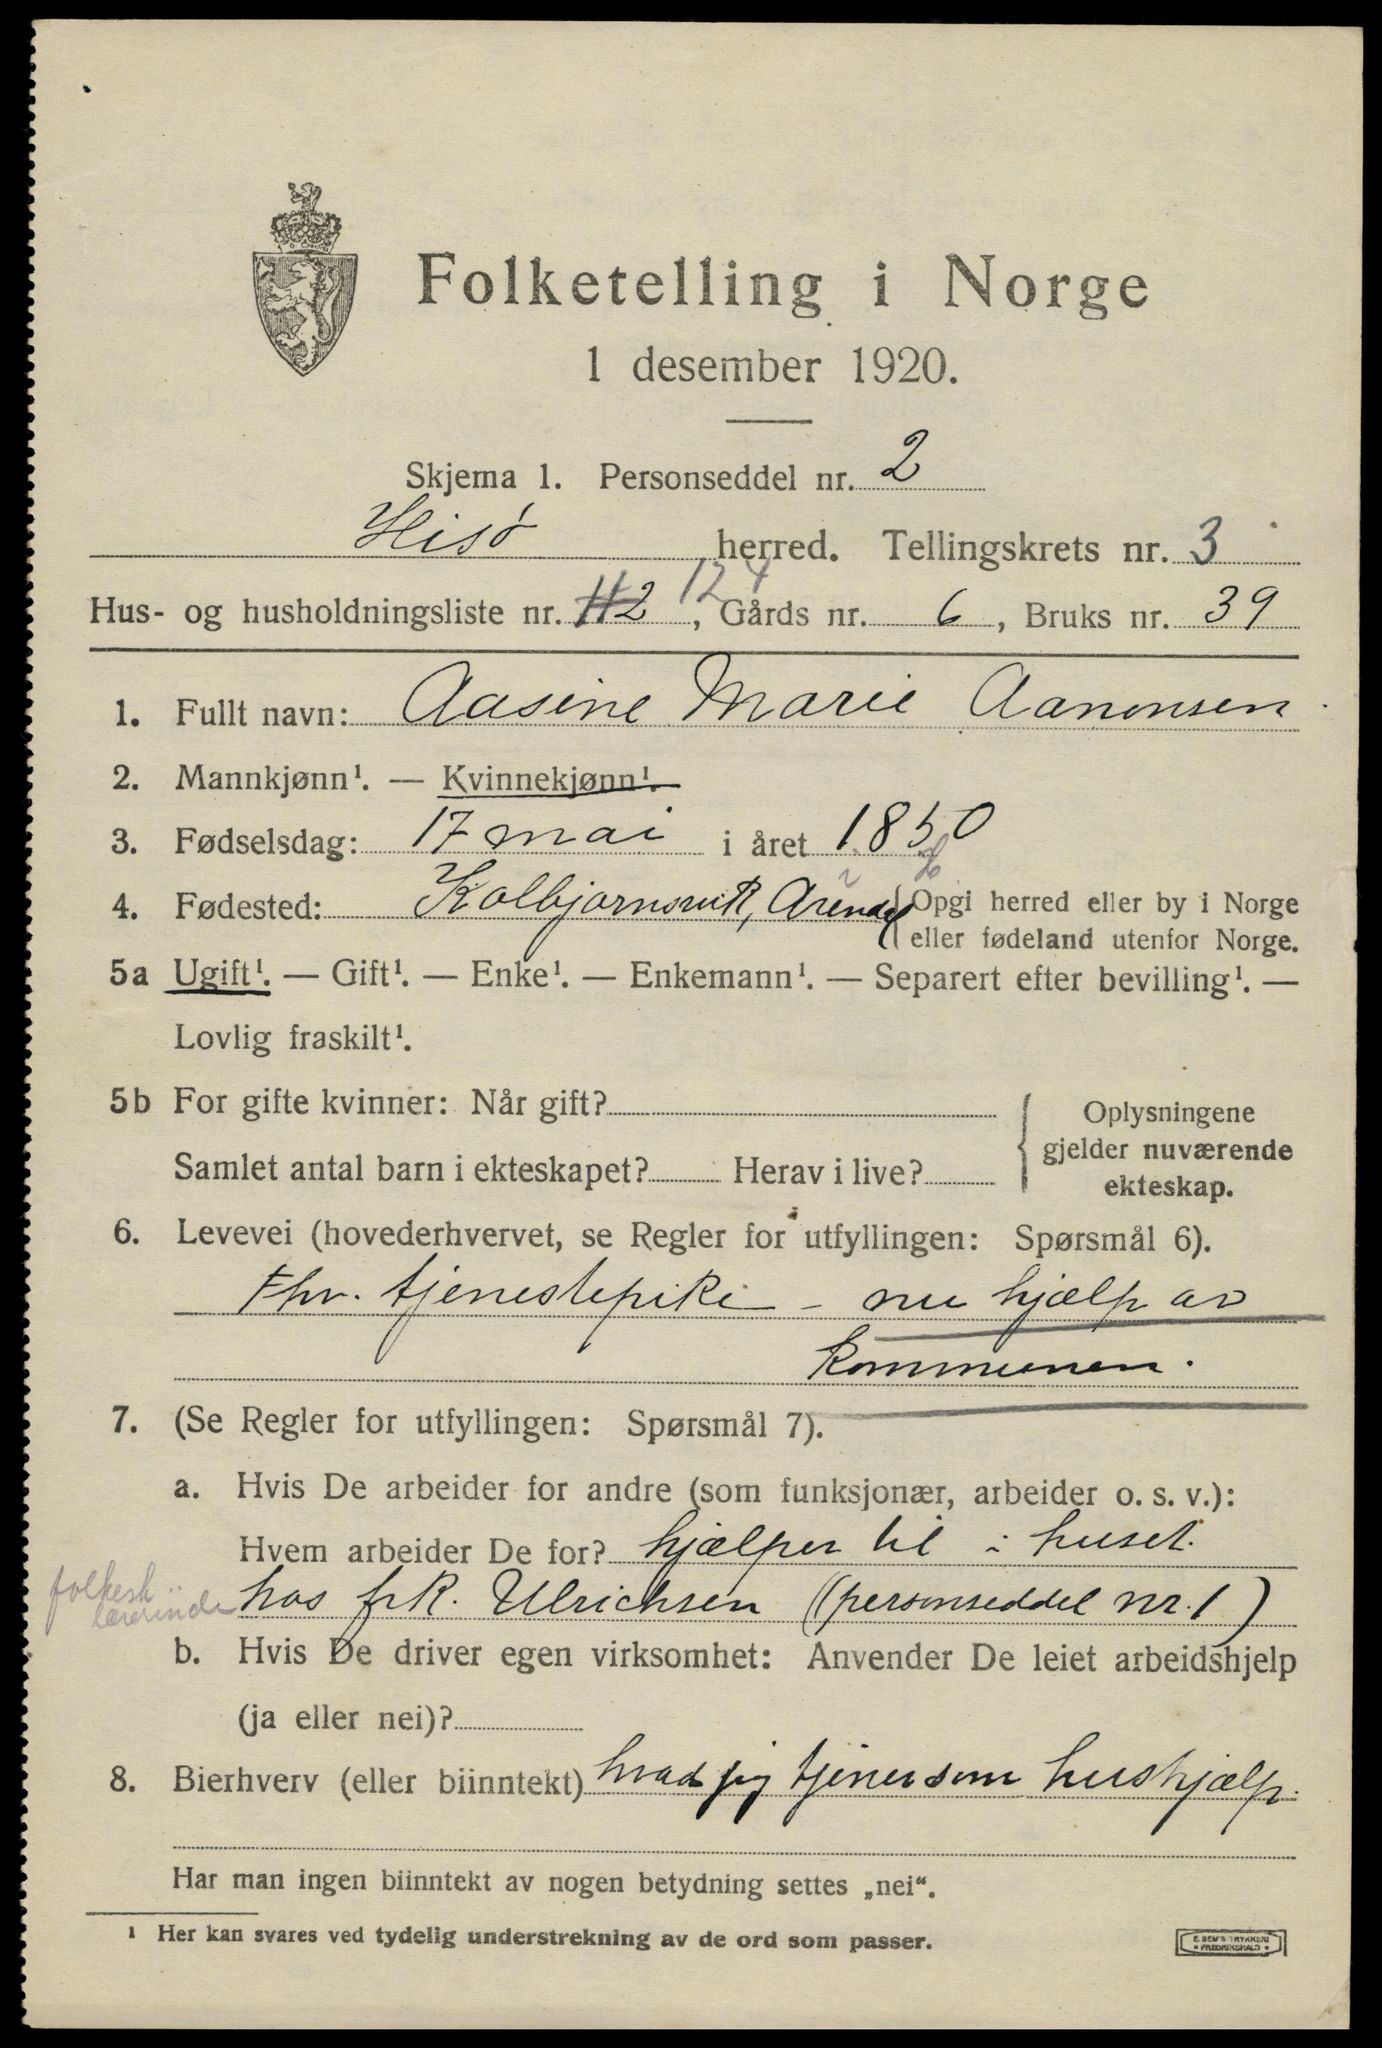 Folketelling i Norge
1 desember 1920.
Skjema 1. Personseddel nr. 2
Hisø herred. Tellingskrets nr. 3
Hus- og husholdningsliste nr. 112 124, Gårds nr. 6, Bruks nr. 39
1. Fullt navn: Aasine Marie Aanonsen
2. Mannkjønn¹. — Kvinnekjønn¹.
3. Fødselsdag: 17 mai i året 1850
4. Fødested: Kolbjørnsvik, Arendal { Opgi herred eller by i Norge
eller fødeland utenfor Norge.
5a Ugift¹. — Gift¹. — Enke¹. — Enkemann¹. — Separert efter bevilling¹. —
Lovlig fraskilt¹.
5b For gifte kvinner: Når gift?
Samlet antal barn i ekteskapet? Herav i live?
Oplysningene
gjelder nuværende
ekteskap.
6. Levevei (hovederhvervet, se Regler for utfyllingen: Spørsmål 6).
Fhv. tjenestepike - nu hjælp av
kommunen.
7. (Se Regler for utfyllingen: Spørsmål 7).
a. Hvis De arbeider for andre (som funksjonær, arbeider o. s. v.):
Hvem arbeider De for? hjælper til i huset
folkesk
lærerinde
hos frk. Ulrichsen (personseddel nr. 1)
b. Hvis De driver egen virksomhet: Anvender De leiet arbeidshjelp
(ja eller nei)?
8. Bierhverv (eller biinntekt) hvad jeg tjener som hushjælp.
Har man ingen biinntekt av nogen betydning settes „nei“.
¹ Her kan svares ved tydelig understrekning av de ord som passer.
E. SEM'S TRYKKERI
FREDRIKSHALD